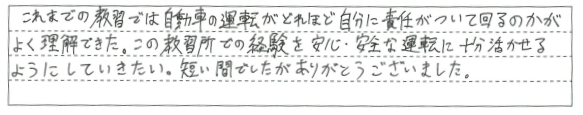 これまでの教習では自動車の運転がどれほど自分に責任がついて回るのかが
よく理解できた。この教習所での経験を安心・安全な運転に十分活かせる
ようにしていきたい。短い間でしたがありがとうございました。